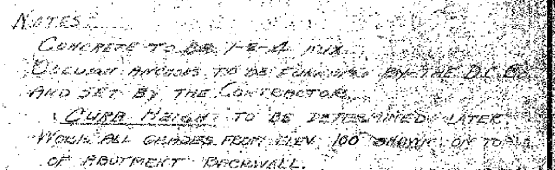 NOTES
CONCRETE TO BE 1-2-4 MIX
ANCHORS TO BE FURNISHED BY THE D.C. CO.
AND SET BY THE CONTRACTOR.
CURB HEIGHT TO BE DETERMINED LATER
WORK ALL GRADES FROM ELEV. 100 SHOWN ON TOP
OF ABUTMENT BACKWALL.